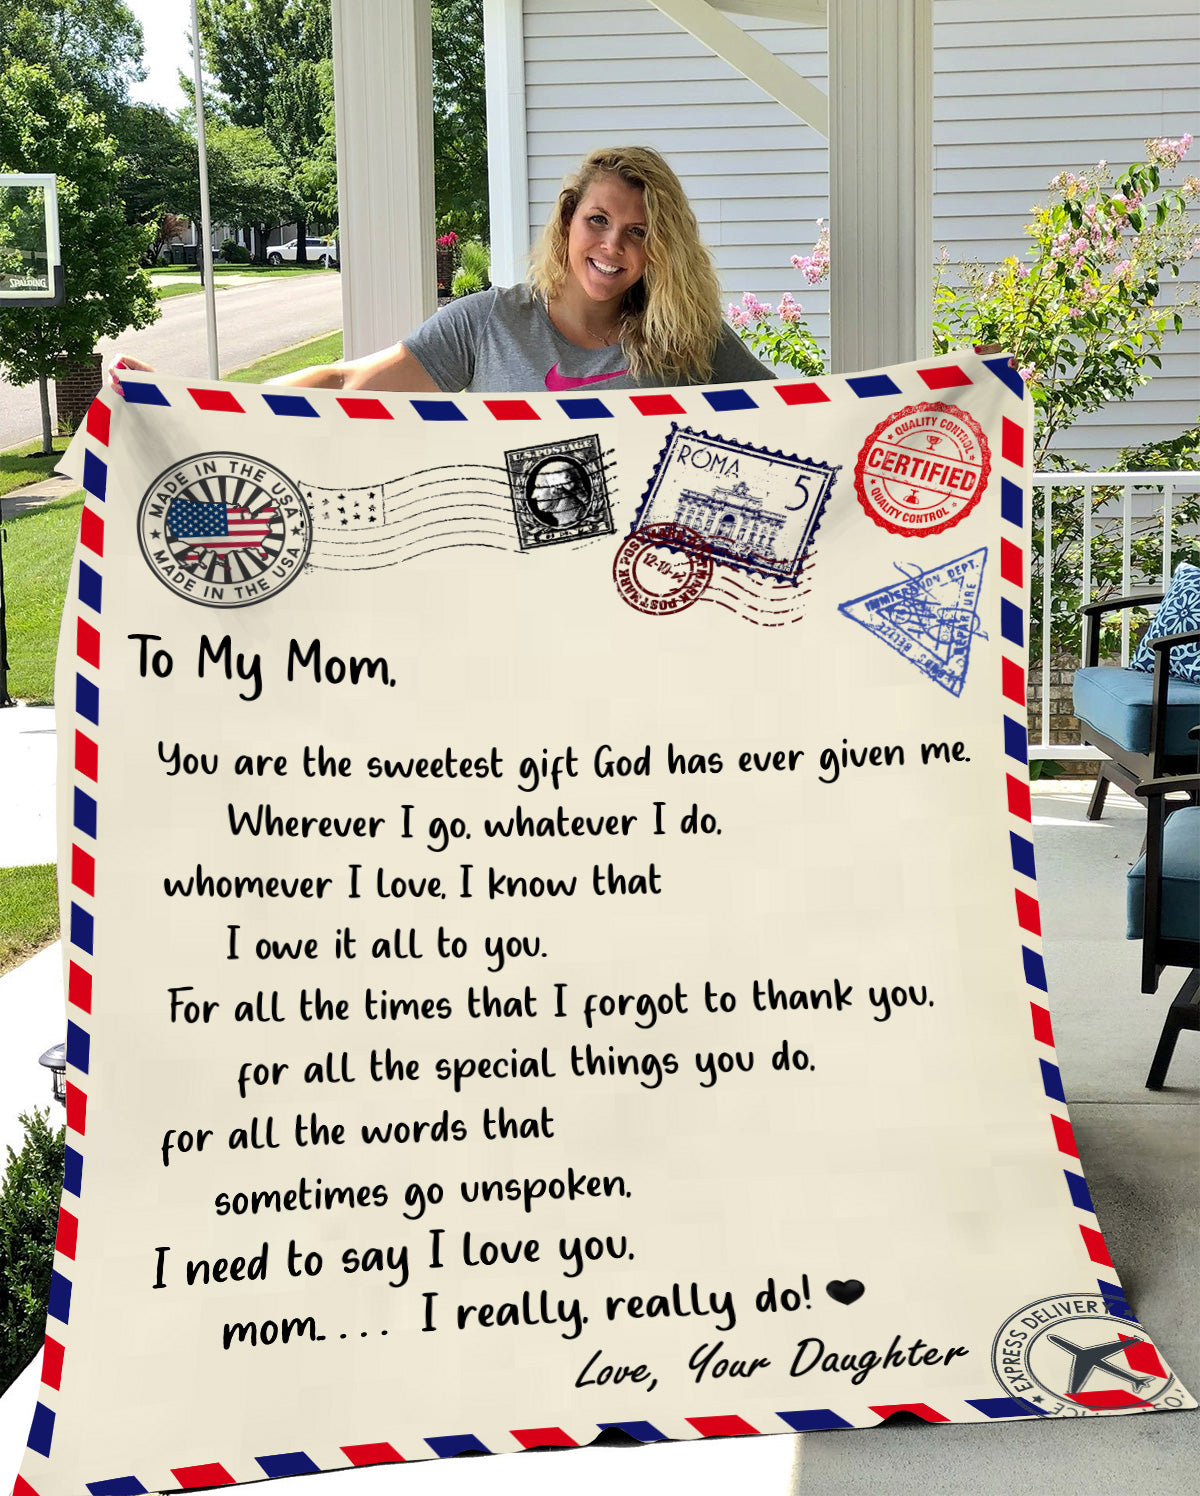 SPALDING
MADE IN THE USA
MADE IN THE USA
ROMA
5
QUALITY CONTROL
CERTIFIED
QUALITY CONTROL
IMMIGRATION DEPT.
DEPARTURE
BELIZE
To My Mom,
You are the sweetest gift God has ever given me.
Wherever I go, whatever I do,
whomever I love, I know that
I owe it all to you.
For all the times that I forgot to thank you,
for all the special things you do,
for all the words that
sometimes go unspoken,
I need to say I love you,
mom.... I really, really do!
Love, Your Daughter
EXPRESS DELIVERY